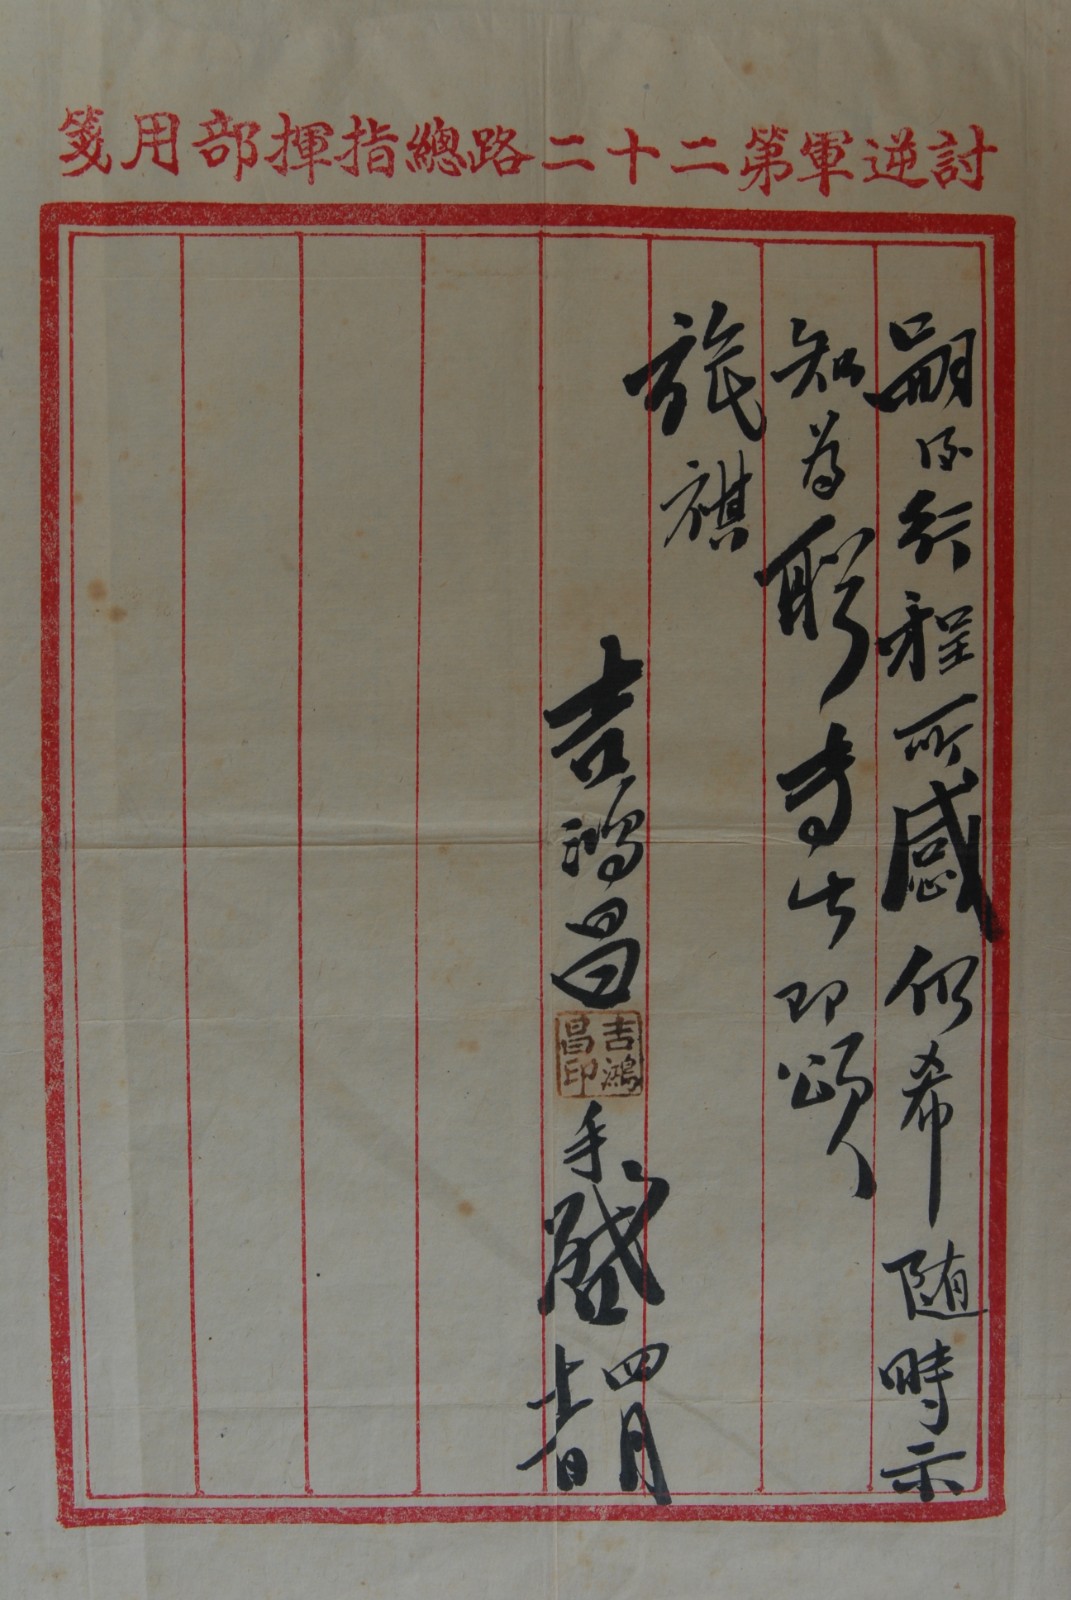 討逆軍第二十二路總指揮部用箋
嗣後行程所感仍希随時示
知為盼專此即頌
旅祺
吉鴻昌
吉鴻昌印
手啟
四月
十一日